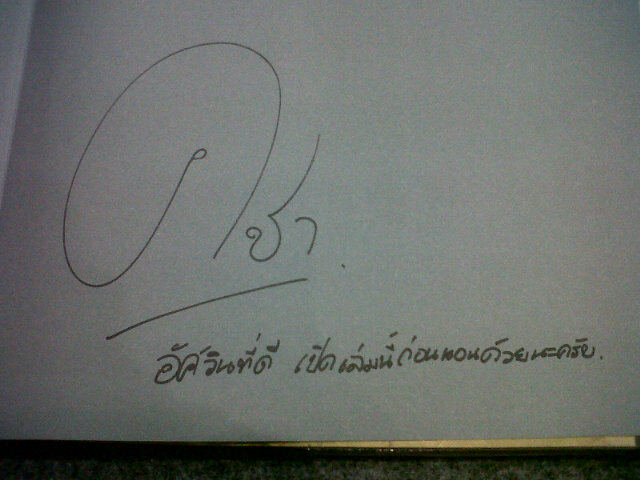 คชา.
อัศวินที่ดี เปิดเล่มนี้ก่อนนอนด้วยนะครับ.